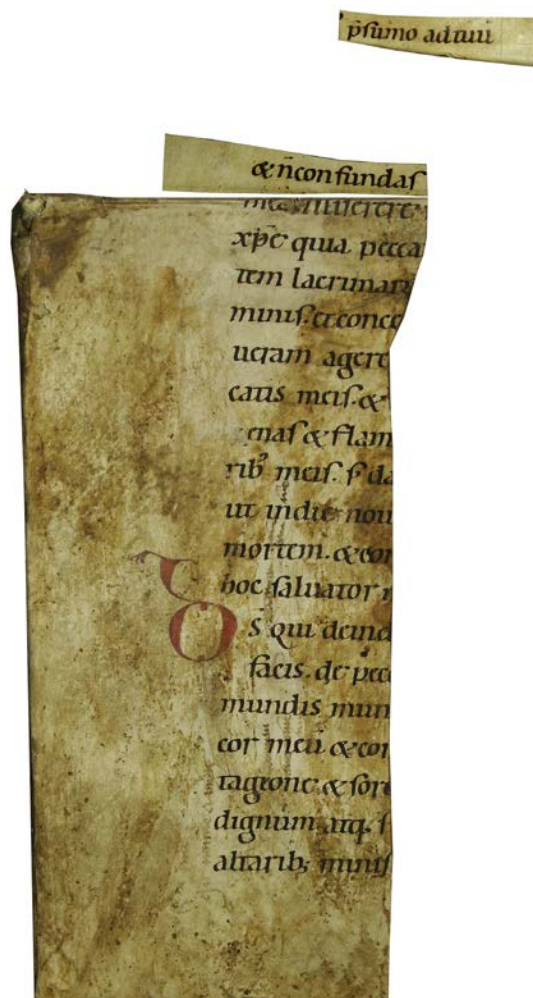 p̄sumo ad tuū
& n̄ confundaſ
meę miſerere
xp̄e quia pecca
tem lacrimar
miniſ. et conce
ueram agere
catis meiſ. &
enaſ & flam
rib⁹ meiſ. ſ; da
ut indie noui
mortem. & con
hoc ſaluator
S qui deind
facis. de pecc
mundis mun
cor meū & cor
tagione & ſord
dignum atq. ſ
altarib; miniſ